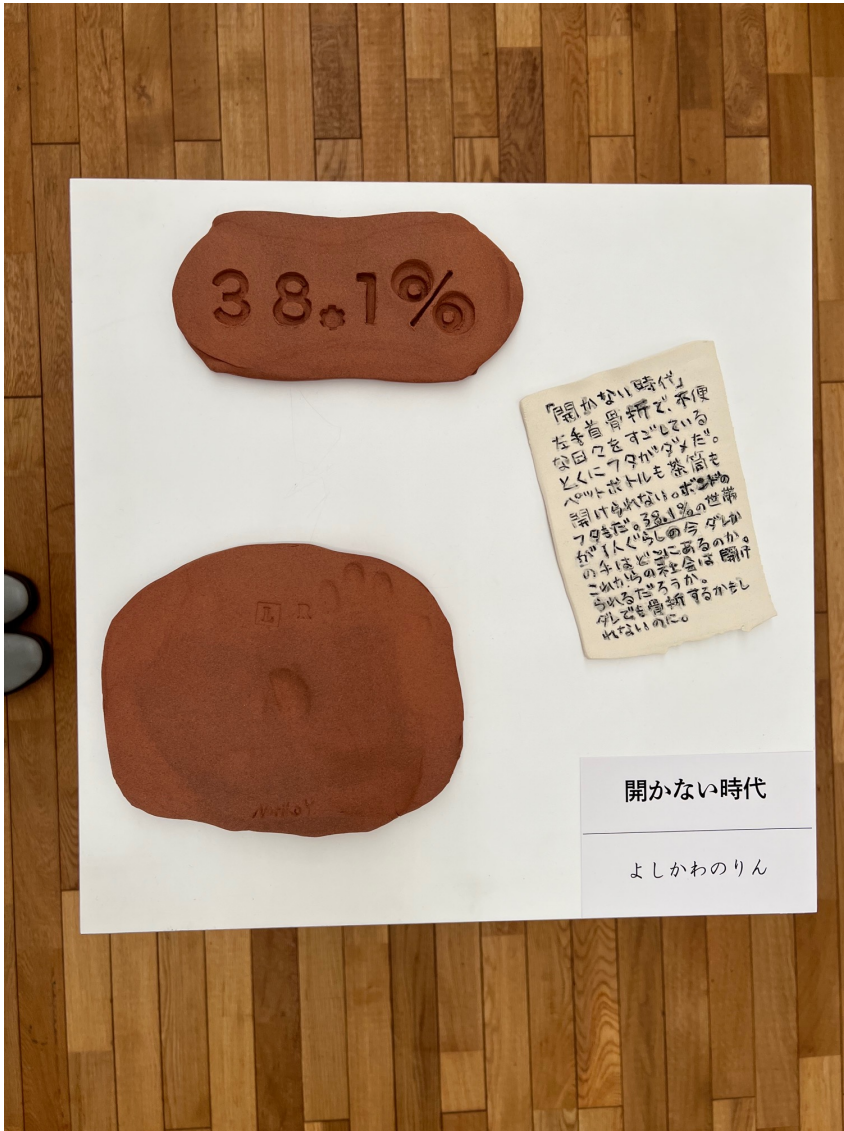 38.1%
「開かない時代」
左手首骨折で、不便
な日々をすごしている
とくにフタがダメだ。
ペットボトルも茶筒も
開けられない。ボンドの
フタもだ。38.1%の世帯
が1人ぐらしの今ダレか
の手はどこにあるのか。
これからの社会は開け
られるだろうか。
ダレでも骨折するかもし
れないのに。
L R
開かない時代
よしかわのりん